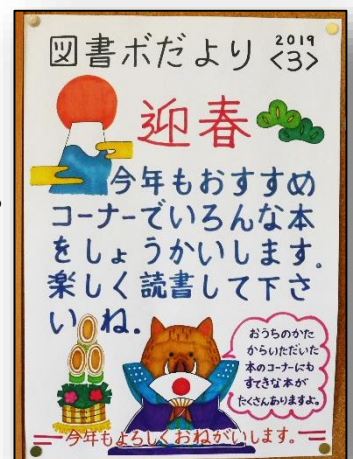 図書ボだより 2019
<3>
迎春
今年もおすすめ
コーナーでいろんな本
をしょうかいします。
楽しく読書して下さ
いね。
おうちのかた
からいただいた
本のコーナーにも
すてきな本が
たくさんありますよ。
今年もよろしくおねがいします。